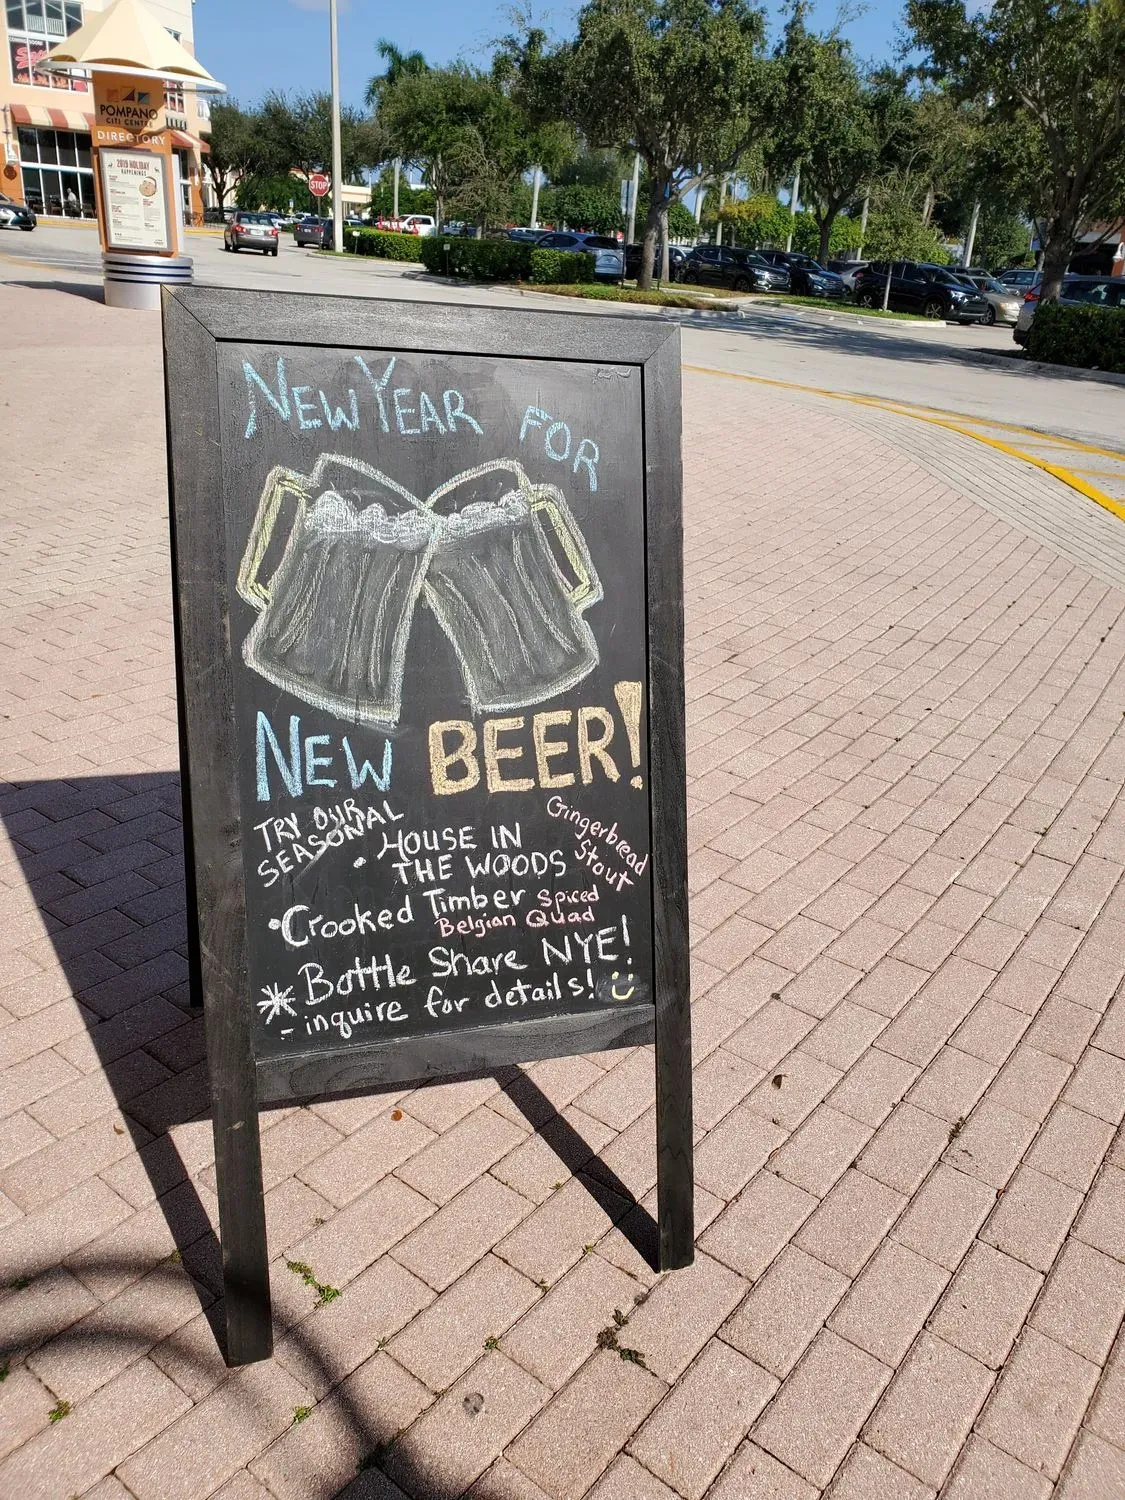 POMPANO
CITI CENTRE
DIRECTORY
2019 HOLIDAY
HAPPENINGS
STOP
NEW YEAR FOR
NEW BEER!
TRY OUR
SEASONAL
• HOUSE IN
THE WOODS
Gingerbread
Stout
• Crooked Timber Spiced
Belgian Quad
* Bottle Share NYE!
- inquire for details!